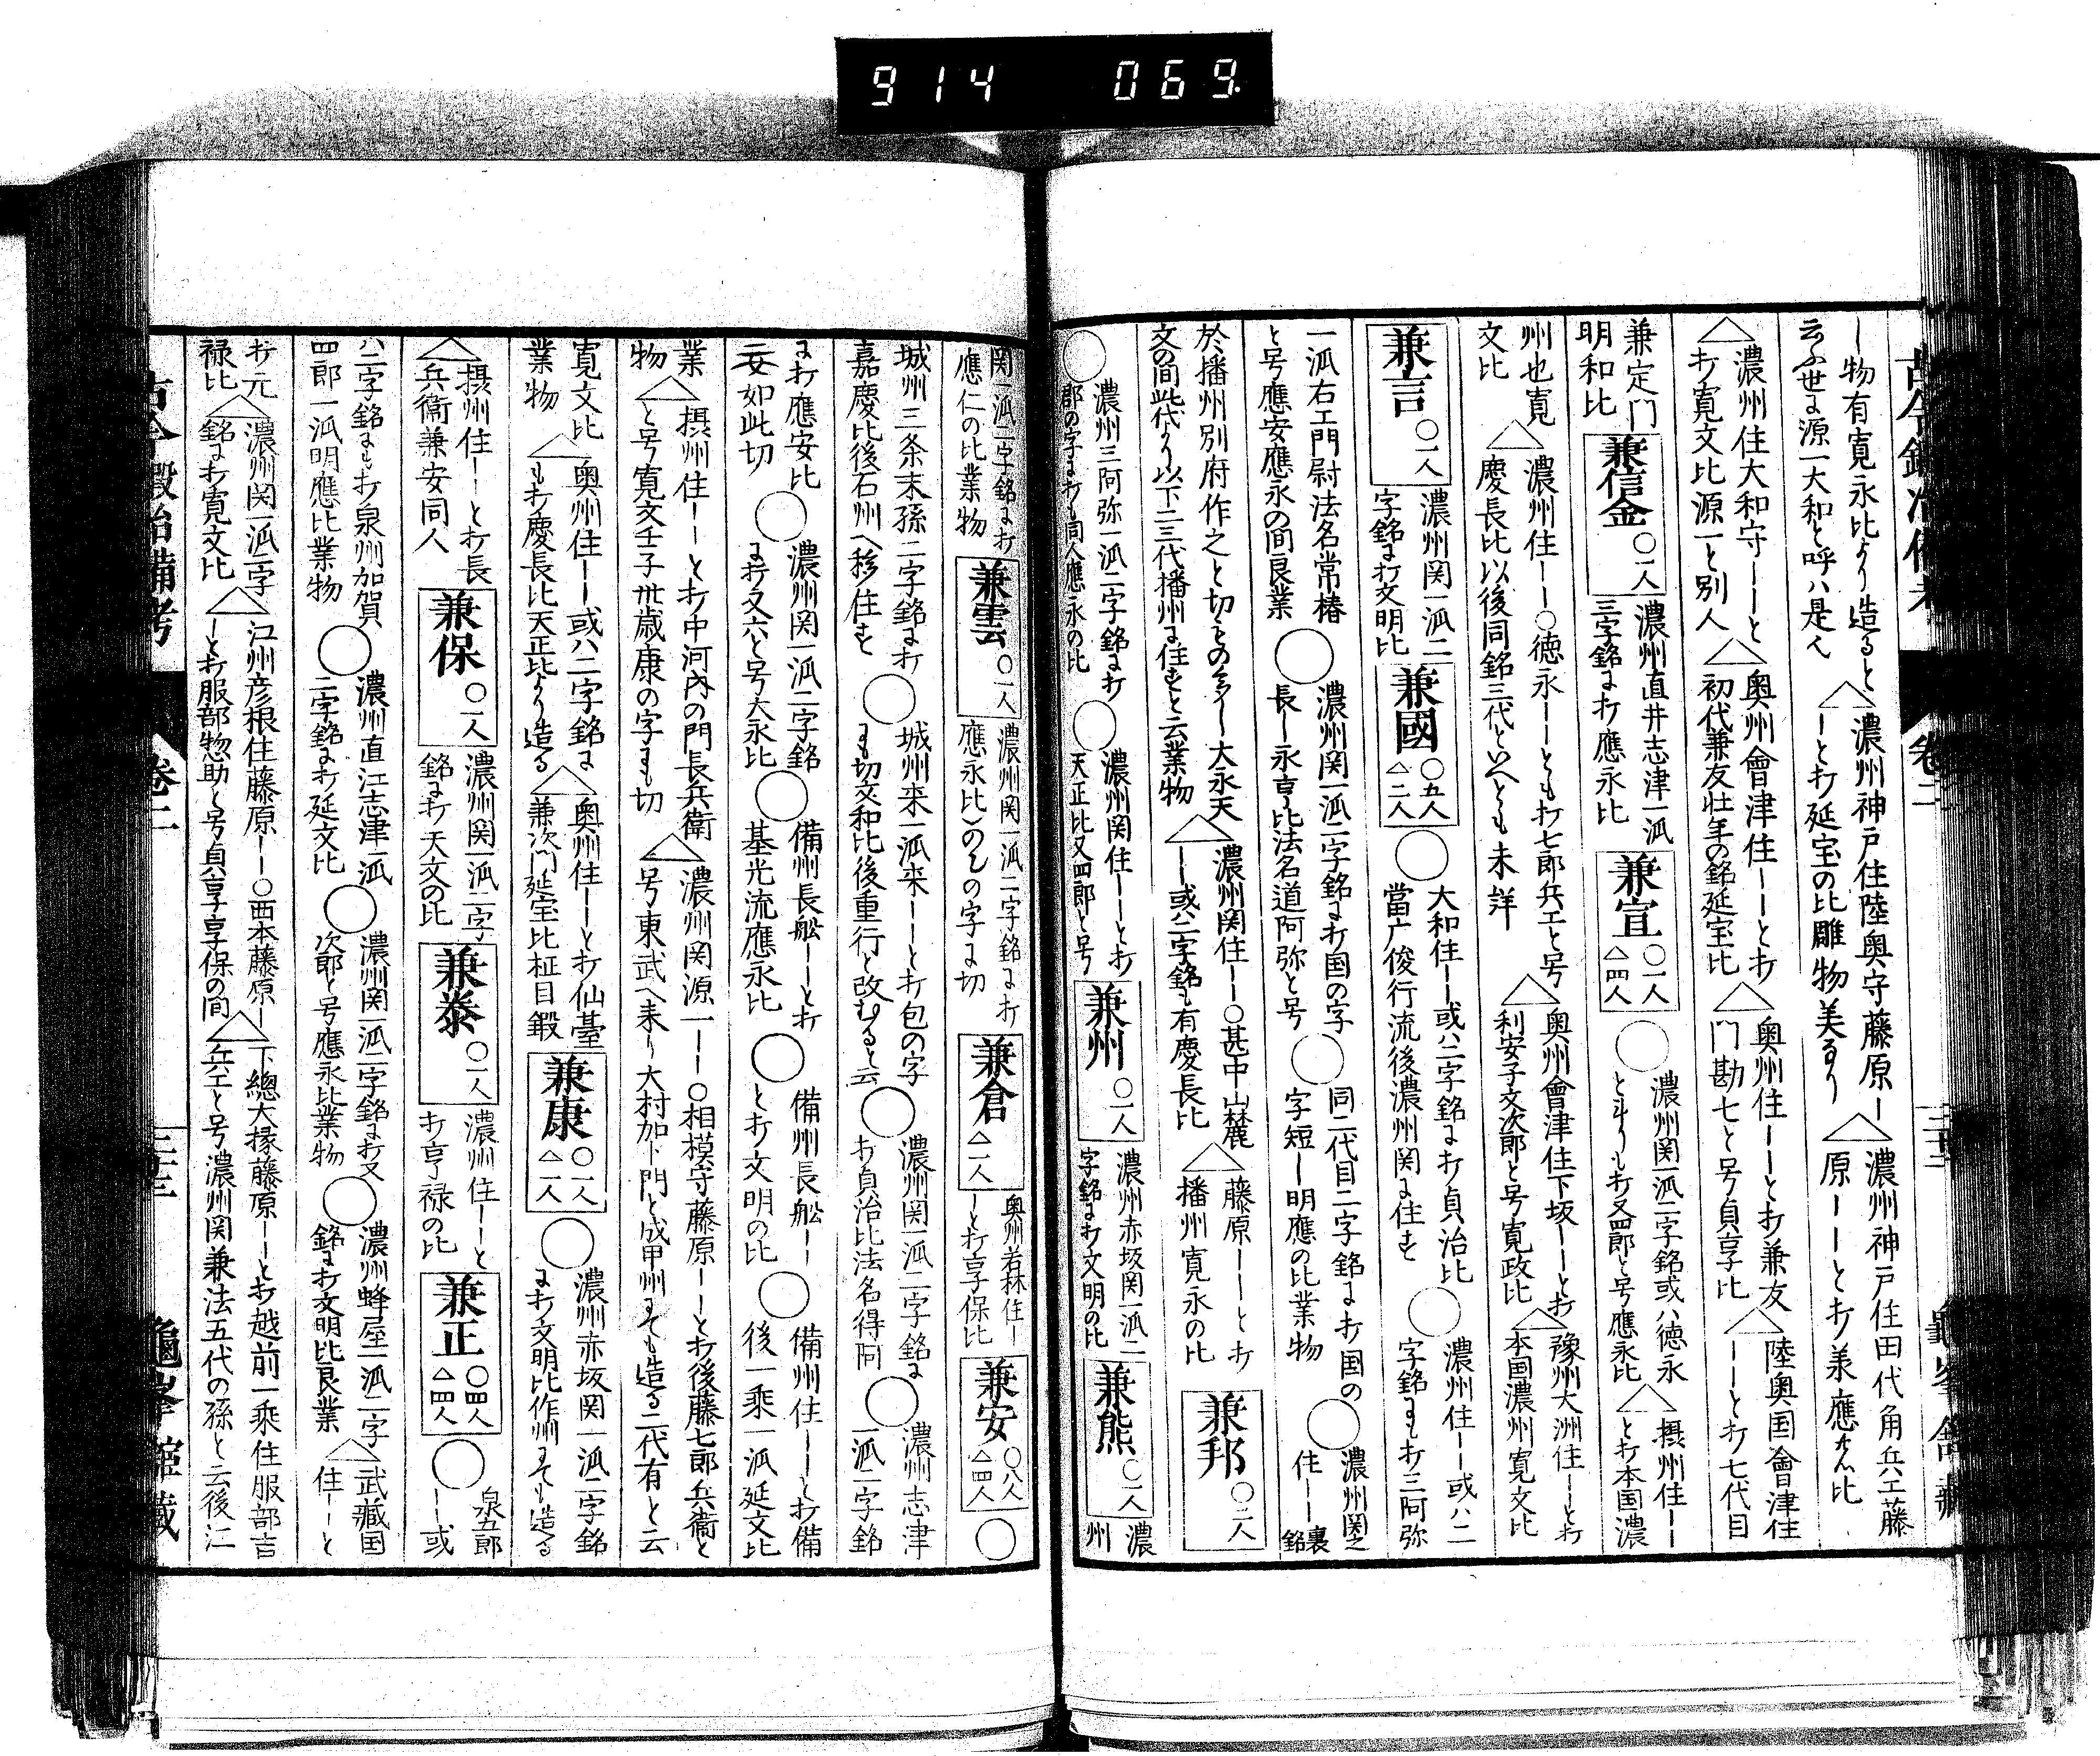 914 069.
古今鍛冶備考 卷二
ー物有寛永比より造ると
云ふ世に源一大和と呼ハ是人
△濃州神戸住陸奥守藤原ー
ーと打延宝の比雕物美なり
△濃州神戸住田代角兵工藤
原ーーと打美應比
△濃州住大和守ーーと
打寛文比源一と別人
△奥州會津住ーーと打
初代兼友壮年の銘延宝比
△奥州住ーーと打兼友
門勘七と号貞享比
△陸奥国會津住
ーーと打七代目
兼定門
明和比
兼信金 ○一人
濃州直井志津一派
三字銘に打應永比
兼宣 ○一人 △四人
○濃州関一派二字銘或ハ徳永
とも打又四郎と号應永比
△摂州住ーー
と打本国濃
州也寛
文比
△濃州住ーー○徳永ーーとも打七郎兵工と号
慶長比以後同銘三代といへとも未詳
△奥州會津住下坂ーーと打
利安子文次郎と号寛政比
△豫州大洲住ーーと打
本国濃州寛文比
兼言 ○一人
濃州関一派二
字銘に打文明比
兼國 ○五人 △二人
○大和住ーー或ハ二字銘に打貞治比
當广俊行流後濃州関に住す
○濃州住ーー或ハ二
字銘にも打三阿弥
一派右工門尉法名常椿
と号應安應永の間良業
○濃州関一派二字銘に打国の字
長ー永享比法名道阿弥と号
○同二代目二字銘に打国の
字短ー明應の比業物
○濃州関之
住ーー裏銘
於播州別府作之と切もの多ー大永天
文の間此代より以下二三代播州に住すと云業物
△濃州関住ーー○甚中山麓
ーー或ハ二字銘も有慶長比
△藤原ーーと打
播州寛永の比
兼邦 ○二人
○濃州三阿弥一派二字銘に打
郡の字に打も同人應永の比
○濃州関住ーーと打
天正比又四郎と号
兼州 ○一人
濃州赤坂関一派二
字銘に打文明の比
兼熊 ○一人
濃州
関一派二字銘に打
應仁の比業物
兼雲 ○一人
濃州関一派二字銘に打
兼倉 △一人
奥州若林住ー
ーと打享保比
兼安 ○八人 △四人
○
城州三条末孫二字銘に打
嘉慶比後石州へ移住す
○城州来一派来ーーと打包の字
にも切文和比後重行と改むると云
○濃州関一派二字銘に
打貞治比法名得阿
○濃州志津
一派二字銘
に打應安比
如此切
○濃州関一派二字銘
に打又六と号大永比
○備州長船ーーと打
基光流應永比
○備州長船ーー
と打文明の比
○備州住ーーと打備
後一乗一派延文比
業
物
△摂州住ーーと打中河内の門長兵衛
と号寛文壬子卅歳康の字にも切
△濃州関源一ーー○相模守藤原ーーと打後藤七郎兵衛と
号東武へ来り大村加卜門と成甲州にても造る二代有と云
寛文比
業物
△奥州住ーー或ハ二字銘に
も打慶長比天正比より造る
△奥州住ーーと打仙臺
兼次門延宝比柾目鍛
兼康 ○一人 △二人
○濃州赤坂関一派二字銘
に打文明比作州にても造る
△摂州住ーーと打長
兵衞兼安同人
兼保 ○一人
濃州関一派二字
銘に打天文の比
兼泰 ○一人
濃州住ーーと
打享禄の比
兼正 ○四人 △四人
○泉五郎
ーー或
ハ二字銘にも打泉州加賀
四郎一派明應比業物
○濃州直江志津一派
二字銘に打延文比
○濃州関一派二字銘に打又
次郎と号應永比業物
○濃州蜂屋一派二字
銘に打文明比良業
△武藏国
住ーーと
打元
禄比
△濃州関一派二字
銘に打寛文比
△江州彦根住藤原ーー○西本藤原ー
ーと打服部惣助と号貞享享保の間
△下總大掾藤原ーーと打越前一乗住服部吉
兵工と号濃州関兼法五代の孫と云後江
古今鍛冶備考 卷二 龜峯舘藏